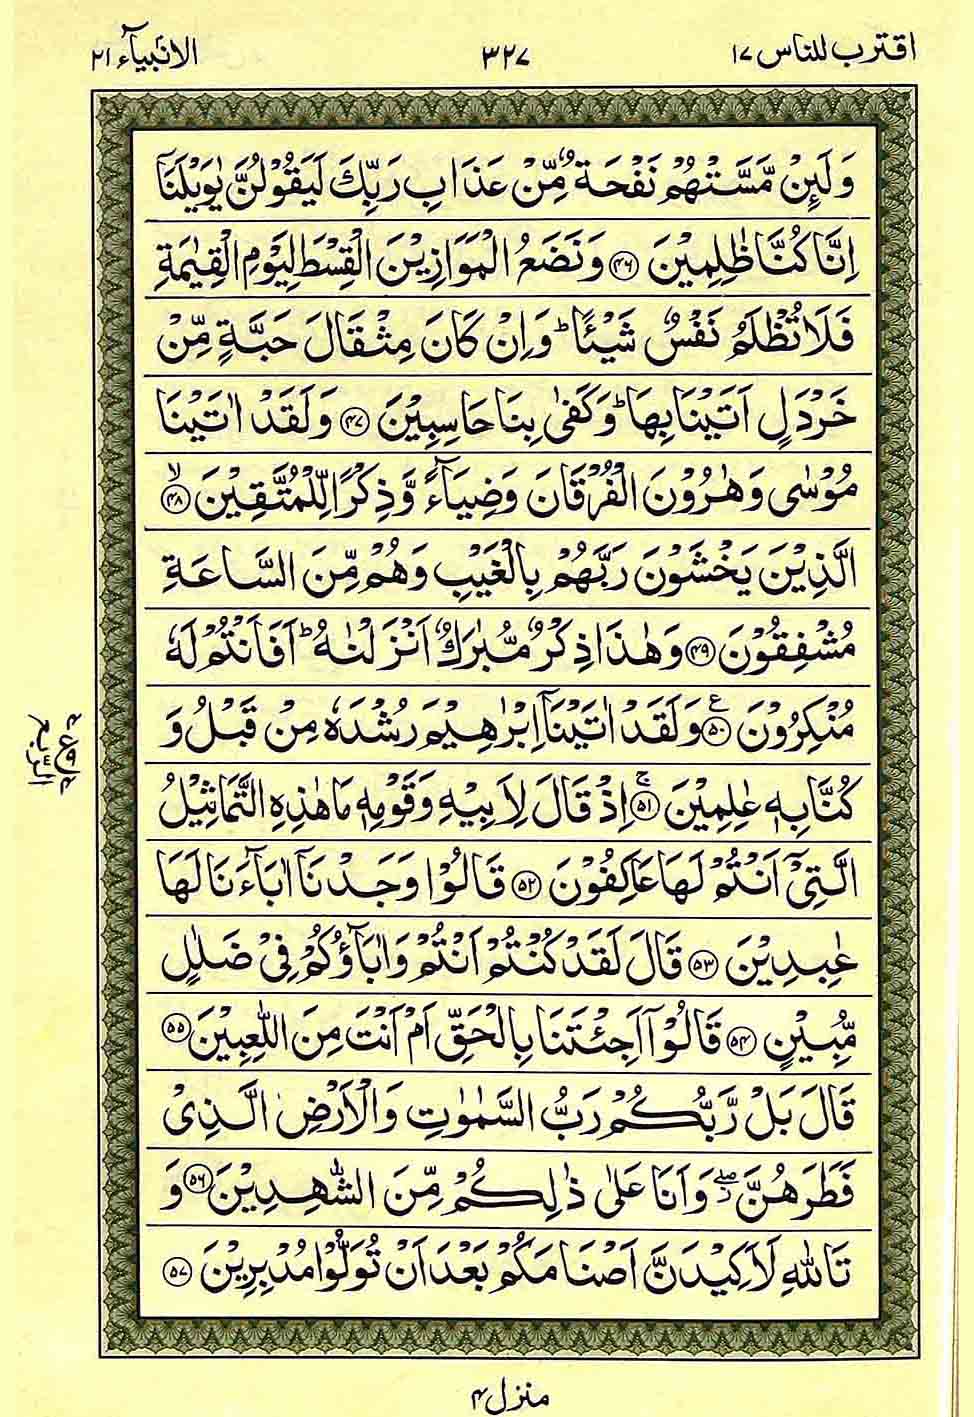 اقترب للناس ۱۷
۳۲۷
الانبیآء ۲۱
وَلَئِنْ مَّسَّتْهُمْ نَفْحَةٌ مِّنْ عَذَابِ رَبِّكَ لَيَقُوْلُنَّ يٰوَيْلَنَآ
اِنَّا كُنَّا ظٰلِمِيْنَ ﴿۴۶﴾ وَنَضَعُ الْمَوَازِيْنَ الْقِسْطَ لِيَوْمِ الْقِيٰمَةِ
فَلَا تُظْلَمُ نَفْسٌ شَيْئًا ؕ وَاِنْ كَانَ مِثْقَالَ حَبَّةٍ مِّنْ
خَرْدَلٍ اَتَيْنَا بِهَا ؕ وَكَفٰى بِنَا حَاسِبِيْنَ ﴿۴۷﴾ وَلَقَدْ اٰتَيْنَا
مُوْسٰى وَهٰرُوْنَ الْفُرْقَانَ وَضِيَآءً وَّذِكْرًا لِّلْمُتَّقِيْنَ ۙ﴿۴۸﴾
الَّذِيْنَ يَخْشَوْنَ رَبَّهُمْ بِالْغَيْبِ وَهُمْ مِّنَ السَّاعَةِ
مُشْفِقُوْنَ ﴿۴۹﴾ وَهٰذَا ذِكْرٌ مُّبٰرَكٌ اَنْزَلْنٰهُ ؕ اَفَاَنْتُمْ لَهٗ
مُنْكِرُوْنَ ﴿۵۰﴾ ع وَلَقَدْ اٰتَيْنَآ اِبْرٰهِيْمَ رُشْدَهٗ مِنْ قَبْلُ وَ
كُنَّا بِهٖ عٰلِمِيْنَ ۚ﴿۵۱﴾ اِذْ قَالَ لِاَبِيْهِ وَقَوْمِهٖ مَا هٰذِهِ التَّمَاثِيْلُ
الَّتِيْٓ اَنْتُمْ لَهَا عَاكِفُوْنَ ﴿۵۲﴾ قَالُوْا وَجَدْنَآ اٰبَآءَنَا لَهَا
عٰبِدِيْنَ ﴿۵۳﴾ قَالَ لَقَدْ كُنْتُمْ اَنْتُمْ وَاٰبَآؤُكُمْ فِيْ ضَلٰلٍ
مُّبِيْنٍ ﴿۵۴﴾ قَالُوْٓا اَجِئْتَنَا بِالْحَقِّ اَمْ اَنْتَ مِنَ اللّٰعِبِيْنَ ﴿۵۵﴾
قَالَ بَلْ رَّبُّكُمْ رَبُّ السَّمٰوٰتِ وَالْاَرْضِ الَّذِيْ
فَطَرَهُنَّ ۖ وَاَنَا عَلٰى ذٰلِكُمْ مِّنَ الشّٰهِدِيْنَ ﴿۵۶﴾ وَ
تَاللّٰهِ لَاَكِيْدَنَّ اَصْنَامَكُمْ بَعْدَ اَنْ تُوَلُّوْا مُدْبِرِيْنَ ﴿۵۷﴾
الربع
منزل ۴